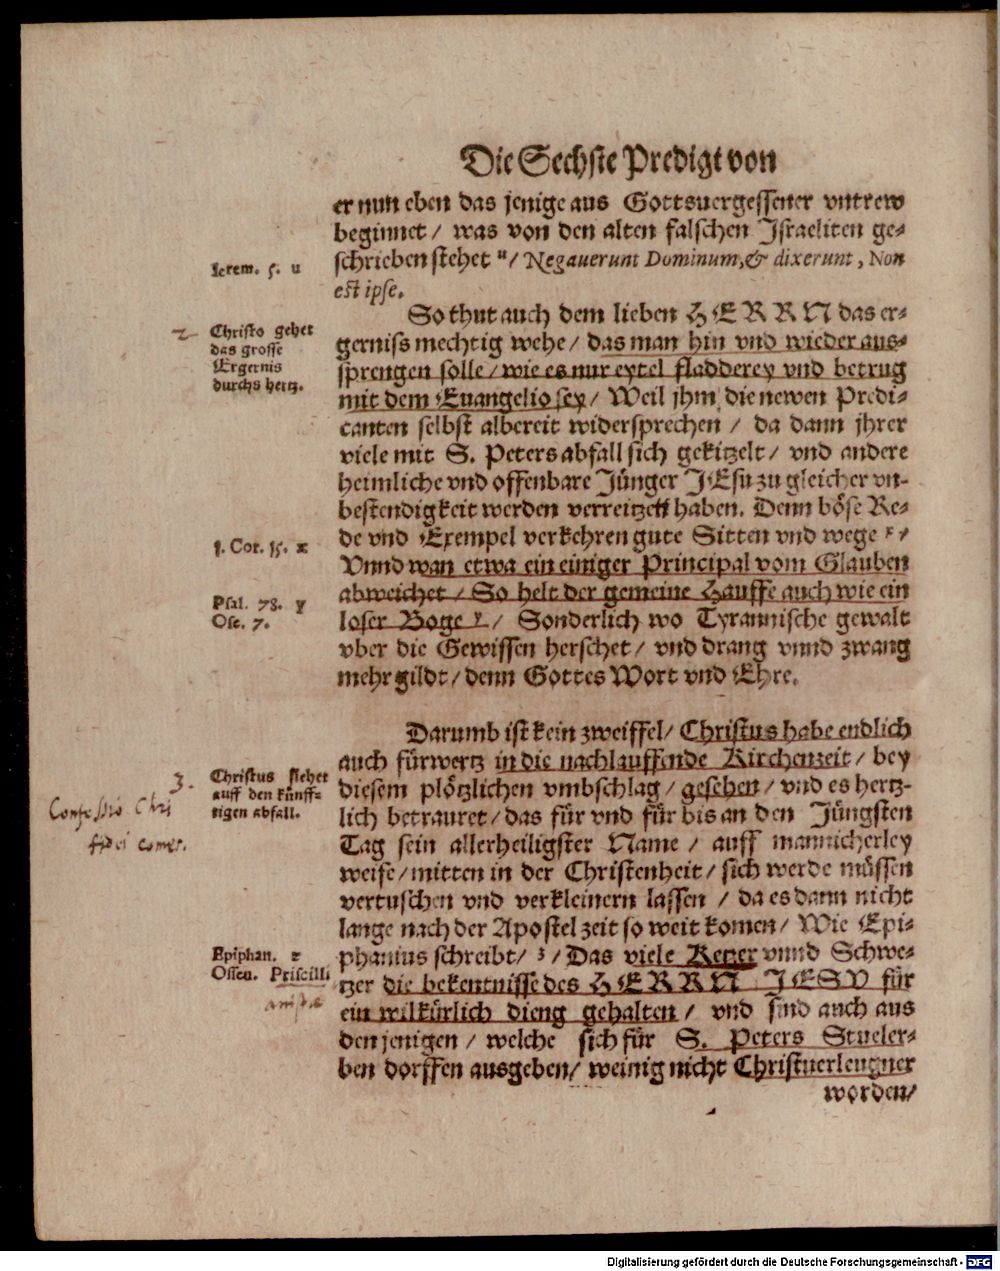 Die Sechste Predigt von
er nun eben das jenige aus Gottsuergessener vntrew
beginnet / was von den alten falschen Israeliten ge-
schrieben stehet u/ Negauerunt Dominum, & dixerunt, Non
est ipse.
Ierem. 5. u
So thut auch dem lieben HERRN das er-
gerniss mechtig wehe / das man hin vnd wieder aus-
sprengen solle / wie es nur eytel fladderey vnd betrug
mit dem Euangelio sey / Weil jhm die newen Predi-
canten selbst albereit widersprechen / da dann jhrer
viele mit S. Peters abfall sich gekitzelt / vnd andere
heimliche vnd offenbare Jünger JEsu zu gleicher vn-
bestendigkeit werden verreitzett haben. Denn böse Re-
de vnd Exempel verkehren gute Sitten vnd wege x /
Vnnd wan etwa ein einiger Principal vom Glauben
abweichet / So helt der gemeine Hauffe auch wie ein
loser Boge y / Sonderlich wo Tyrannische gewalt
vber die Gewissen herschet / vnd drang vnnd zwang
mehr gildt / denn Gottes Wort vnd Ehre.
2
Christo gehet
das grosse
Ergernis
durchs hertz.
1. Cor. 15. x
Psal. 78. y
Ose. 7.
Darumb ist kein zweiffel / Christus habe endlich
auch fürwertz in die nachlauffende Kirchenzeit / bey
diesem plötzlichen vmbschlag / gesehen / vnd es hertz-
lich betrauret / das für vnd für bis an den Jüngsten
Tag sein allerheiligster Name / auff mannicherley
weise / mitten in der Christenheit / sich werde müssen
vertuschen vnd verkleinern lassen / da es dann nicht
lange nach der Apostel zeit so weit komen / Wie Epi-
phanius schreibt / z / Das viele Ketzer vnnd Schwe-
tzer die bekentnisse des HERRN JESV für
ein wilkürlich dieng gehalten / vnd sind auch aus
den jenigen / welche sich für S. Peters Stueler-
ben dorffen ausgeben / weinig nicht Christuerleugner
worden /
3.
Christus siehet
auff den künff-
tigen abfall.
Confessio Chri
fidei
Epiphan. z
Ossen. Priscilli
anistae
Digitalisierung gefördert durch die Deutsche Forschungsgemeinschaft - DFG